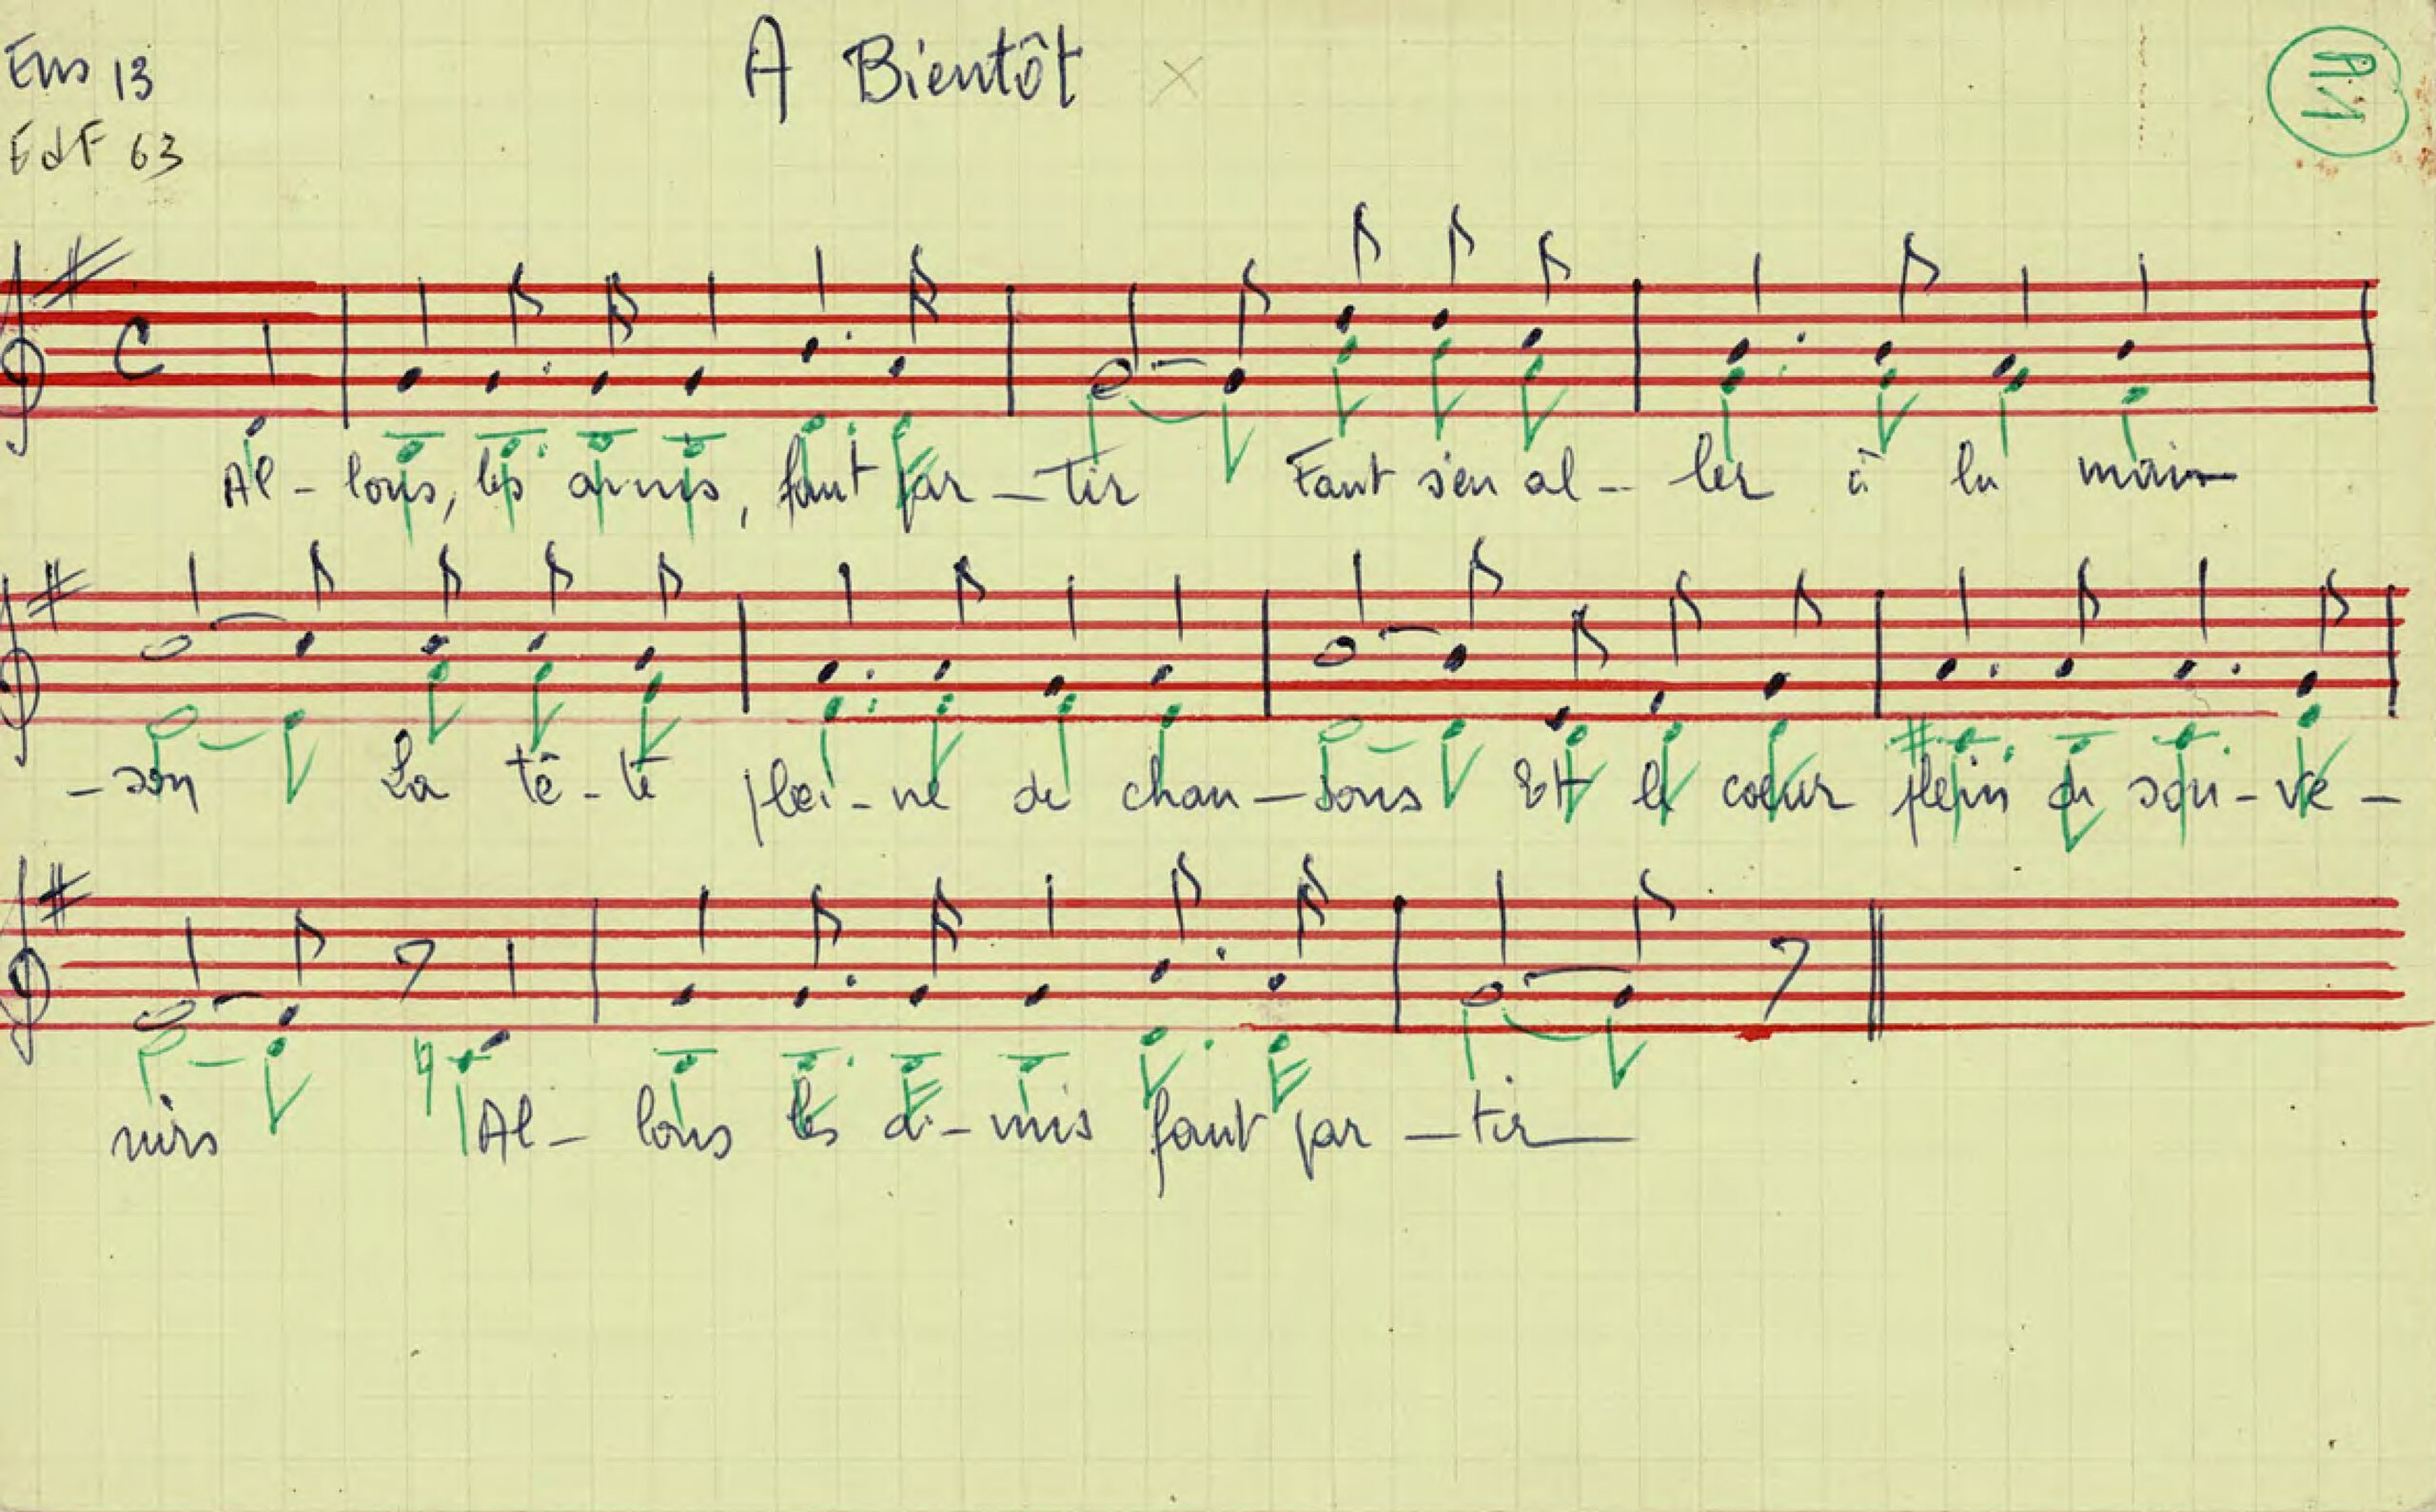 A Bientôt
Ens 13
EdF 63
Al - lons, les amis, faut par - tir Faut s'en al - ler à la mai
- son La tê - te plei - ne de chan - sons Et le coeur plein de sou - ve -
nirs Al - lons les a - mis faut par - tir